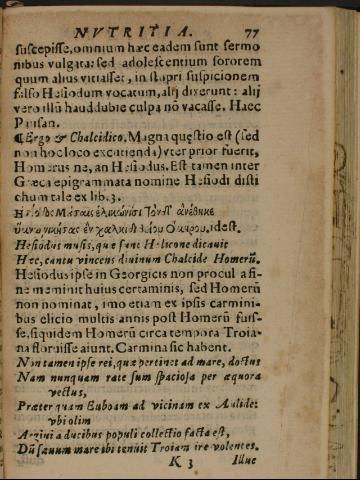 NVTRITIA. 77
suscepisse, omnium hæc eadem sunt sermo
nibus vulgata: sed adolescentium sororem
quum alius vitiasset, in stupri suspicionem
falso Hesiodum vocatum, alij dixerunt: alij
vero illũ hauddubie culpa nõ vacasse. Haec
Pausan.
¶Ergo & Chalcidico. Magna quęstio est (sed
non hoc loco excutienda) vter prior fuerit,
Homerus ne, an Hesiodus. Est tamen inter
Græca epigrammata nomine Hesiodi disti
chum tale ex lib. 3.
Ησίοδος Μούσαις ἑλικωνίσι τόνδ' ἀνέθηκε
ὕμνῳ νικήσας ἐν χαλκίδι θεῖον Ὅμηρον. idest.
Hesiodus musis, quæ sunt Helicone dicauit
Hæc, cantu vincens diuinum Chalcide Homerũ.
Hesiodus ipse in Georgicis non procul a fi-
ne meminit huius certaminis, sed Homerũ
non nominat, imo etiam ex ipsis carmini-
bus elicio multis annis post Homerũ fuis-
se, siquidem Homerũ circa tempora Troia-
na floruisse aiunt. Carmina sic habent.
Non tamen ipse rei, quæ pertinet ad mare, doctus
Nam nunquam rate sum spaciosa per æquora
vectus,
Præter quam Euboam ad vicinam ex Aulide:
vbi olim
Argiui a ducibus populi collectio facta est,
Dũ sæuum mare ibi tenuit Troiam ire volentes.
K 3 Illuc